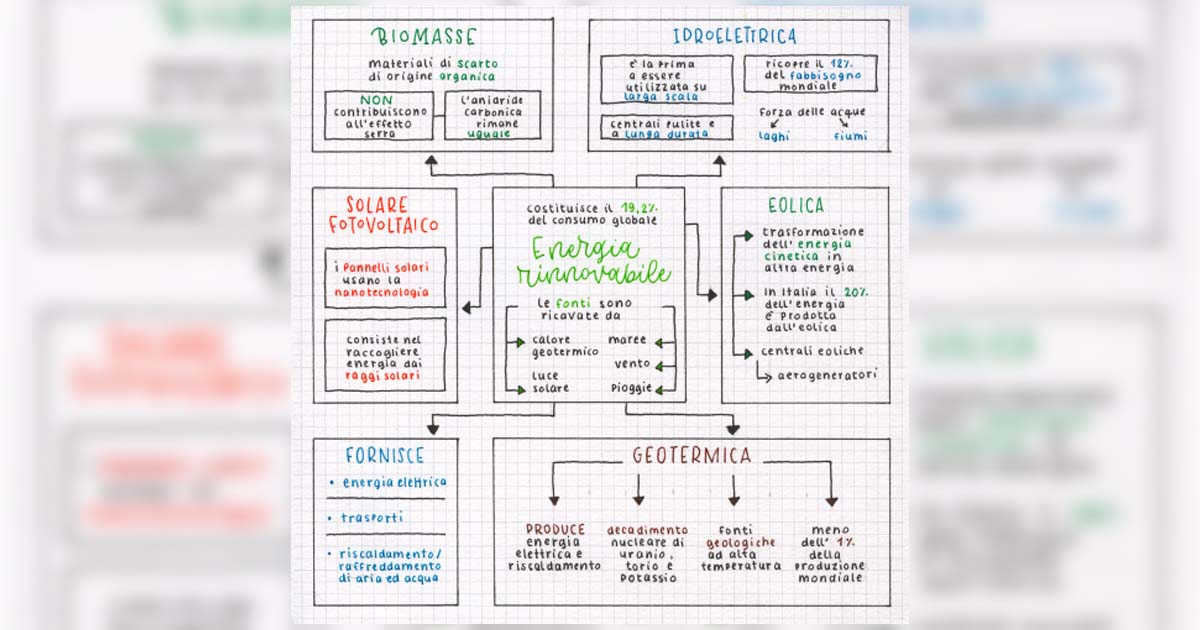 BIOMASSE
materiali di scarto
di origine organica
NON
contribuiscono
all'effetto
serra
l'anidride
carbonica
rimane
uguale
IDROELETTRICA
è la prima
a essere
utilizzata su
larga scala
ricopre il 12%
del fabbisogno
mondiale
centrali pulite e
a lunga durata
forza delle acque
laghi
fiumi
SOLARE
FOTOVOLTAICO
i pannelli solari
usano la
nanotecnologia
consiste nel
raccogliere
energia dai
raggi solari
costituisce il 19,2%
del consumo globale
Energia
rinnovabile
le fonti sono
ricavate da
calore
geotermico
luce
solare
maree
vento
pioggie
EOLICA
trasformazione
dell'energia
cinetica in
altra energia
in Italia il 20%
dell'energia
è prodotta
dall'eolica
centrali eoliche
aerogeneratori
FORNISCE
• energia elettrica
• trasporti
• riscaldamento/
raffreddamento
di aria ed acqua
GEOTERMICA
PRODUCE
energia
elettrica e
riscaldamento
decadimento
nucleare di
uranio,
torio e
potassio
fonti
geologiche
ad alta
temperatura
meno
dell'1%
della
produzione
mondiale